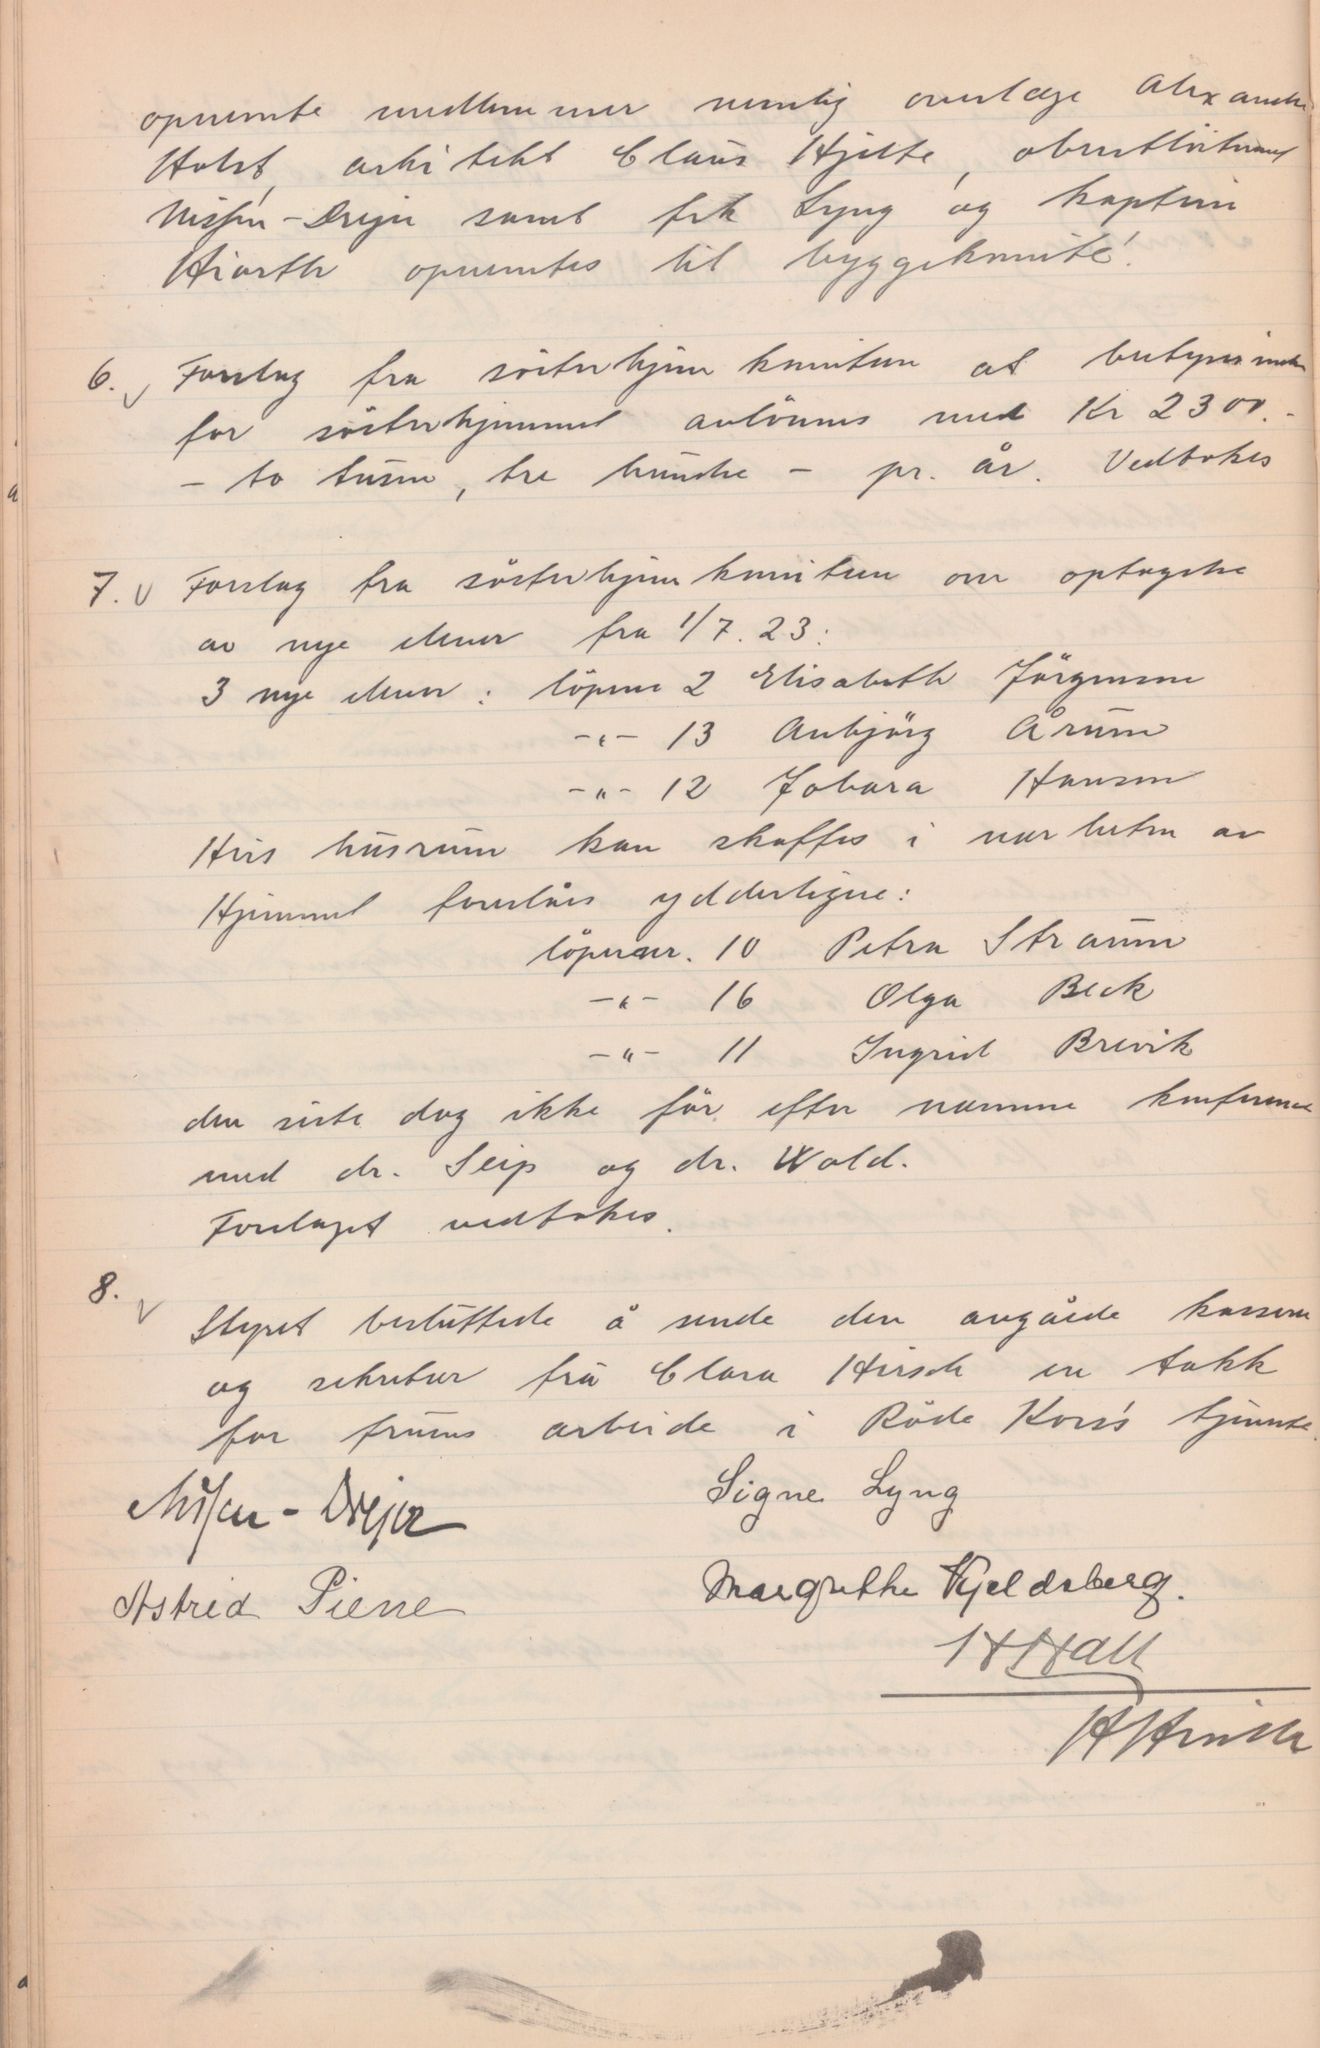 opnevnte medlemmer nemlig overlæge Alexander
Holst, arkitekt Claus Hjelte, oberstløitnant
Nissen-Drejer samt frk Lyng og kaptein
Hiorth opnevntes til byggekomité.
6. v Forslag fra søsterhjemkomiteen at bestyrerinden
for søsterhjemmet avlønnes med Kr 2300.-
- to tusen, tre hundre - pr. år. Vedtokes
7. v Forslag fra søsterhjemkomiteen om optagelse
av nye elever fra 1/7.23:
3 nye elever: löpenr 2 Elisabeth Jörgensen
-"- 13 Anbjörg Årum
-"- 12 Tobara Hansen
Hvis husrum kan skaffes i nærheten av
Hjemmet foreslåes ydderligere:
löpenr. 10 Petra Straum
-"- 16 Olga Beck
-"- 11 Ingrid Brevik
den siste dog ikke för efter nærmere konferense
med dr. Seip og dr. Wold.
Forslaget vedtokes.
8. v
Styret besluttede å sende den avgåede kasserer
og sekretær frü Clara Hirsch en takk
for fruens arbeide i Röde Kors's tjeneste.
Nissen-Drejer Signe Lyng
Astrid Piene Margrethe Kjeldsberg.
H Hall